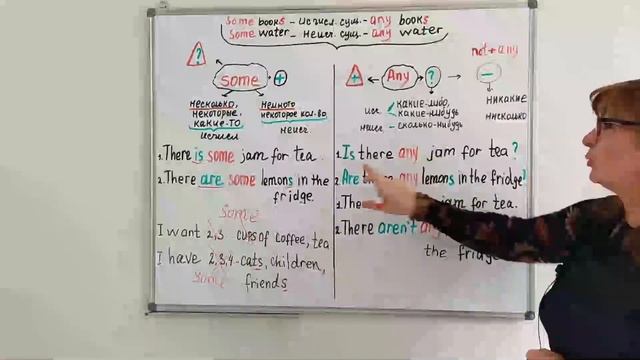 some books – исчисл. сущ. – any books
some water – неисч. сущ. – any water
?
some
+
несколько,
некоторые,
какие-то
исчисл
немного
некоторое кол-во
неисч
1. There is some jam for tea.
2. There are some lemons in the
fridge.
some
I want 2,3 cups of coffee, tea
I have 2,3,4 - cats, children,
some friends
not + any
+
Any
?
–
исч какие-либо,
какие-нибудь
неисч – сколько-нибудь
никакие
нисколько
1. Is there any jam for tea?
2. Are any lemons in the fridge?
1. jam for tea.
2. There aren't
the